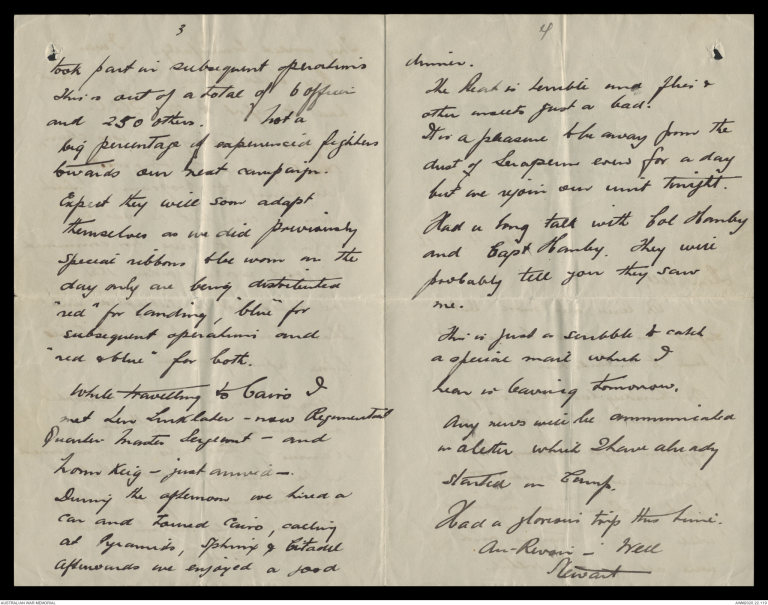 3
took part in subsequent operations
This is out of a total of 6 officers
and 250 others. Not a
big percentage of experienced fighters
towards our next campaign.
Expect they will soon adapt
themselves as we did previously
Special ribbons to be worn on the
day only are being distributed
"red" for landing, "blue" for
subsequent operations and
"red & blue" for both.
While travelling to Cairo I
met Len Linklater - now Regimental
Quarter Master Sergeant - and
Norm Keig - just arrived -.
During the afternoon we hired a
car and toured Cairo, calling
at Pyramids, Sphinx & Citadel
Afterwards we enjoyed a good
4
dinner.
The heat is terrible and flies &
other insects just as bad.
It is a pleasure to be away from the
dust of Serapeum even for a day
but we rejoin our unit tonight.
Had a long talk with Col
and Capt They will
probably tell you they saw
me.
This is just a scribble to catch
a special mail which I
hear is leaving tomorrow.
Any news will be communicated
in a letter which I have already
started in Camp.
Had a glorious trip this time.
Au-Revoir - Well
Stewart
AUSTRALIAN WAR MEMORIAL